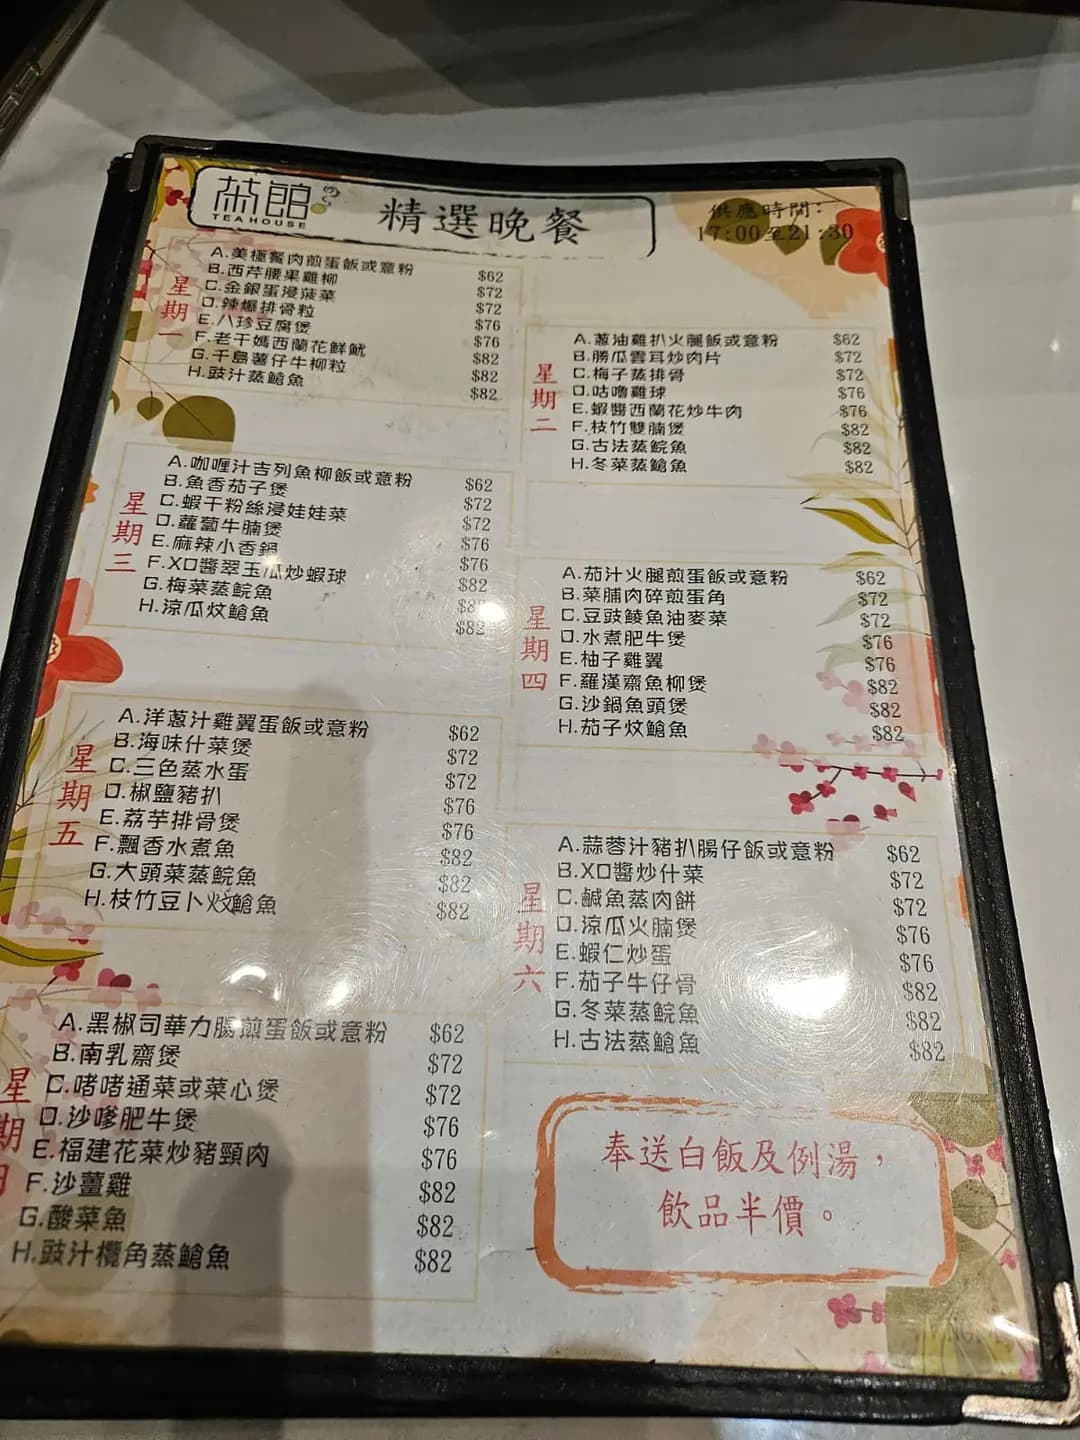 茶館
TEA HOUSE
精選晚餐
供應時間：
17:00至21:30
星期一
A.美極餐肉煎蛋飯或意粉 $62
B.西芹腰果雞柳 $72
C.金銀蛋浸菠菜 $72
D.辣爆排骨粒 $76
E.八珍豆腐煲 $76
F.老干媽西蘭花鮮魷 $82
G.千島薯仔牛柳粒 $82
H.豉汁蒸鱠魚 $82
星期二
A.蔥油雞扒火腿飯或意粉 $62
B.勝瓜雲耳炒肉片 $72
C.梅子蒸排骨 $72
D.咕嚕雞球 $76
E.蝦醬西蘭花炒牛肉 $76
F.枝竹雙腩煲 $82
G.古法蒸鯇魚 $82
H.冬菜蒸鱠魚 $82
星期三
A.咖喱汁吉列魚柳飯或意粉 $62
B.魚香茄子煲 $72
C.蝦干粉絲浸娃娃菜 $72
D.蘿蔔牛腩煲 $76
E.麻辣小香鍋 $76
F.XO醬翠玉瓜炒蝦球 $82
G.梅菜蒸鯇魚 $82
H.涼瓜炆鱠魚 $82
星期四
A.茄汁火腿煎蛋飯或意粉 $62
B.菜脯肉碎煎蛋角 $72
C.豆豉鯪魚油麥菜 $72
D.水煮肥牛煲 $76
E.柚子雞翼 $76
F.羅漢齋魚柳煲 $82
G.沙鍋魚頭煲 $82
H.茄子炆鱠魚 $82
星期五
A.洋蔥汁雞翼蛋飯或意粉 $62
B.海味什菜煲 $72
C.三色蒸水蛋 $72
D.椒鹽豬扒 $76
E.荔芋排骨煲 $76
F.飄香水煮魚 $82
G.大頭菜蒸鯇魚 $82
H.枝竹豆卜炆鱠魚 $82
星期六
A.蒜蓉汁豬扒腸仔飯或意粉 $62
B.XO醬炒什菜 $72
C.鹹魚蒸肉餅 $72
D.涼瓜火腩煲 $76
E.蝦仁炒蛋 $76
F.茄子牛仔骨 $82
G.冬菜蒸鯇魚 $82
H.古法蒸鱠魚 $82
星期日
A.黑椒司華力腸煎蛋飯或意粉 $62
B.南乳齋煲 $72
C.啫啫通菜或菜心煲 $72
D.沙嗲肥牛煲 $76
E.福建花菜炒豬頸肉 $76
F.沙薑雞 $82
G.酸菜魚 $82
H.豉汁欖角蒸鱠魚 $82
奉送白飯及例湯，
飲品半價。